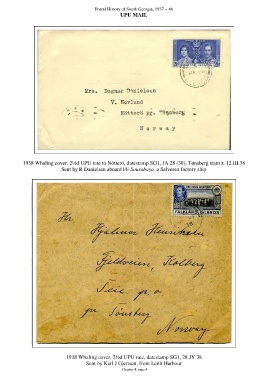 Postal History of South Georgia, 1937 – 46
UPU MAIL
Mrs. Dagmar Danielsen
V. Hovland
Nötterö pg. Tönsberg
Norway
1938 Whaling cover, 2½d UPU rate to Nötterö, datestamp SG1, JA 28 (38), Tønsberg transit, 12.III.38
Sent by R Danielsen aboard FF Sourabaya, a Salvesen factory ship
FALKLAND ISLANDS
Hr.
Hjalmar Henriksen
Fjeldveien, Kolberg
Teie p.o.
pr Tönsberg
Norway
1938 Whaling cover, 2½d UPU rate, datestamp SG1, 28 JY 38
Sent by Karl J Gjertsen, from Leith Harbour